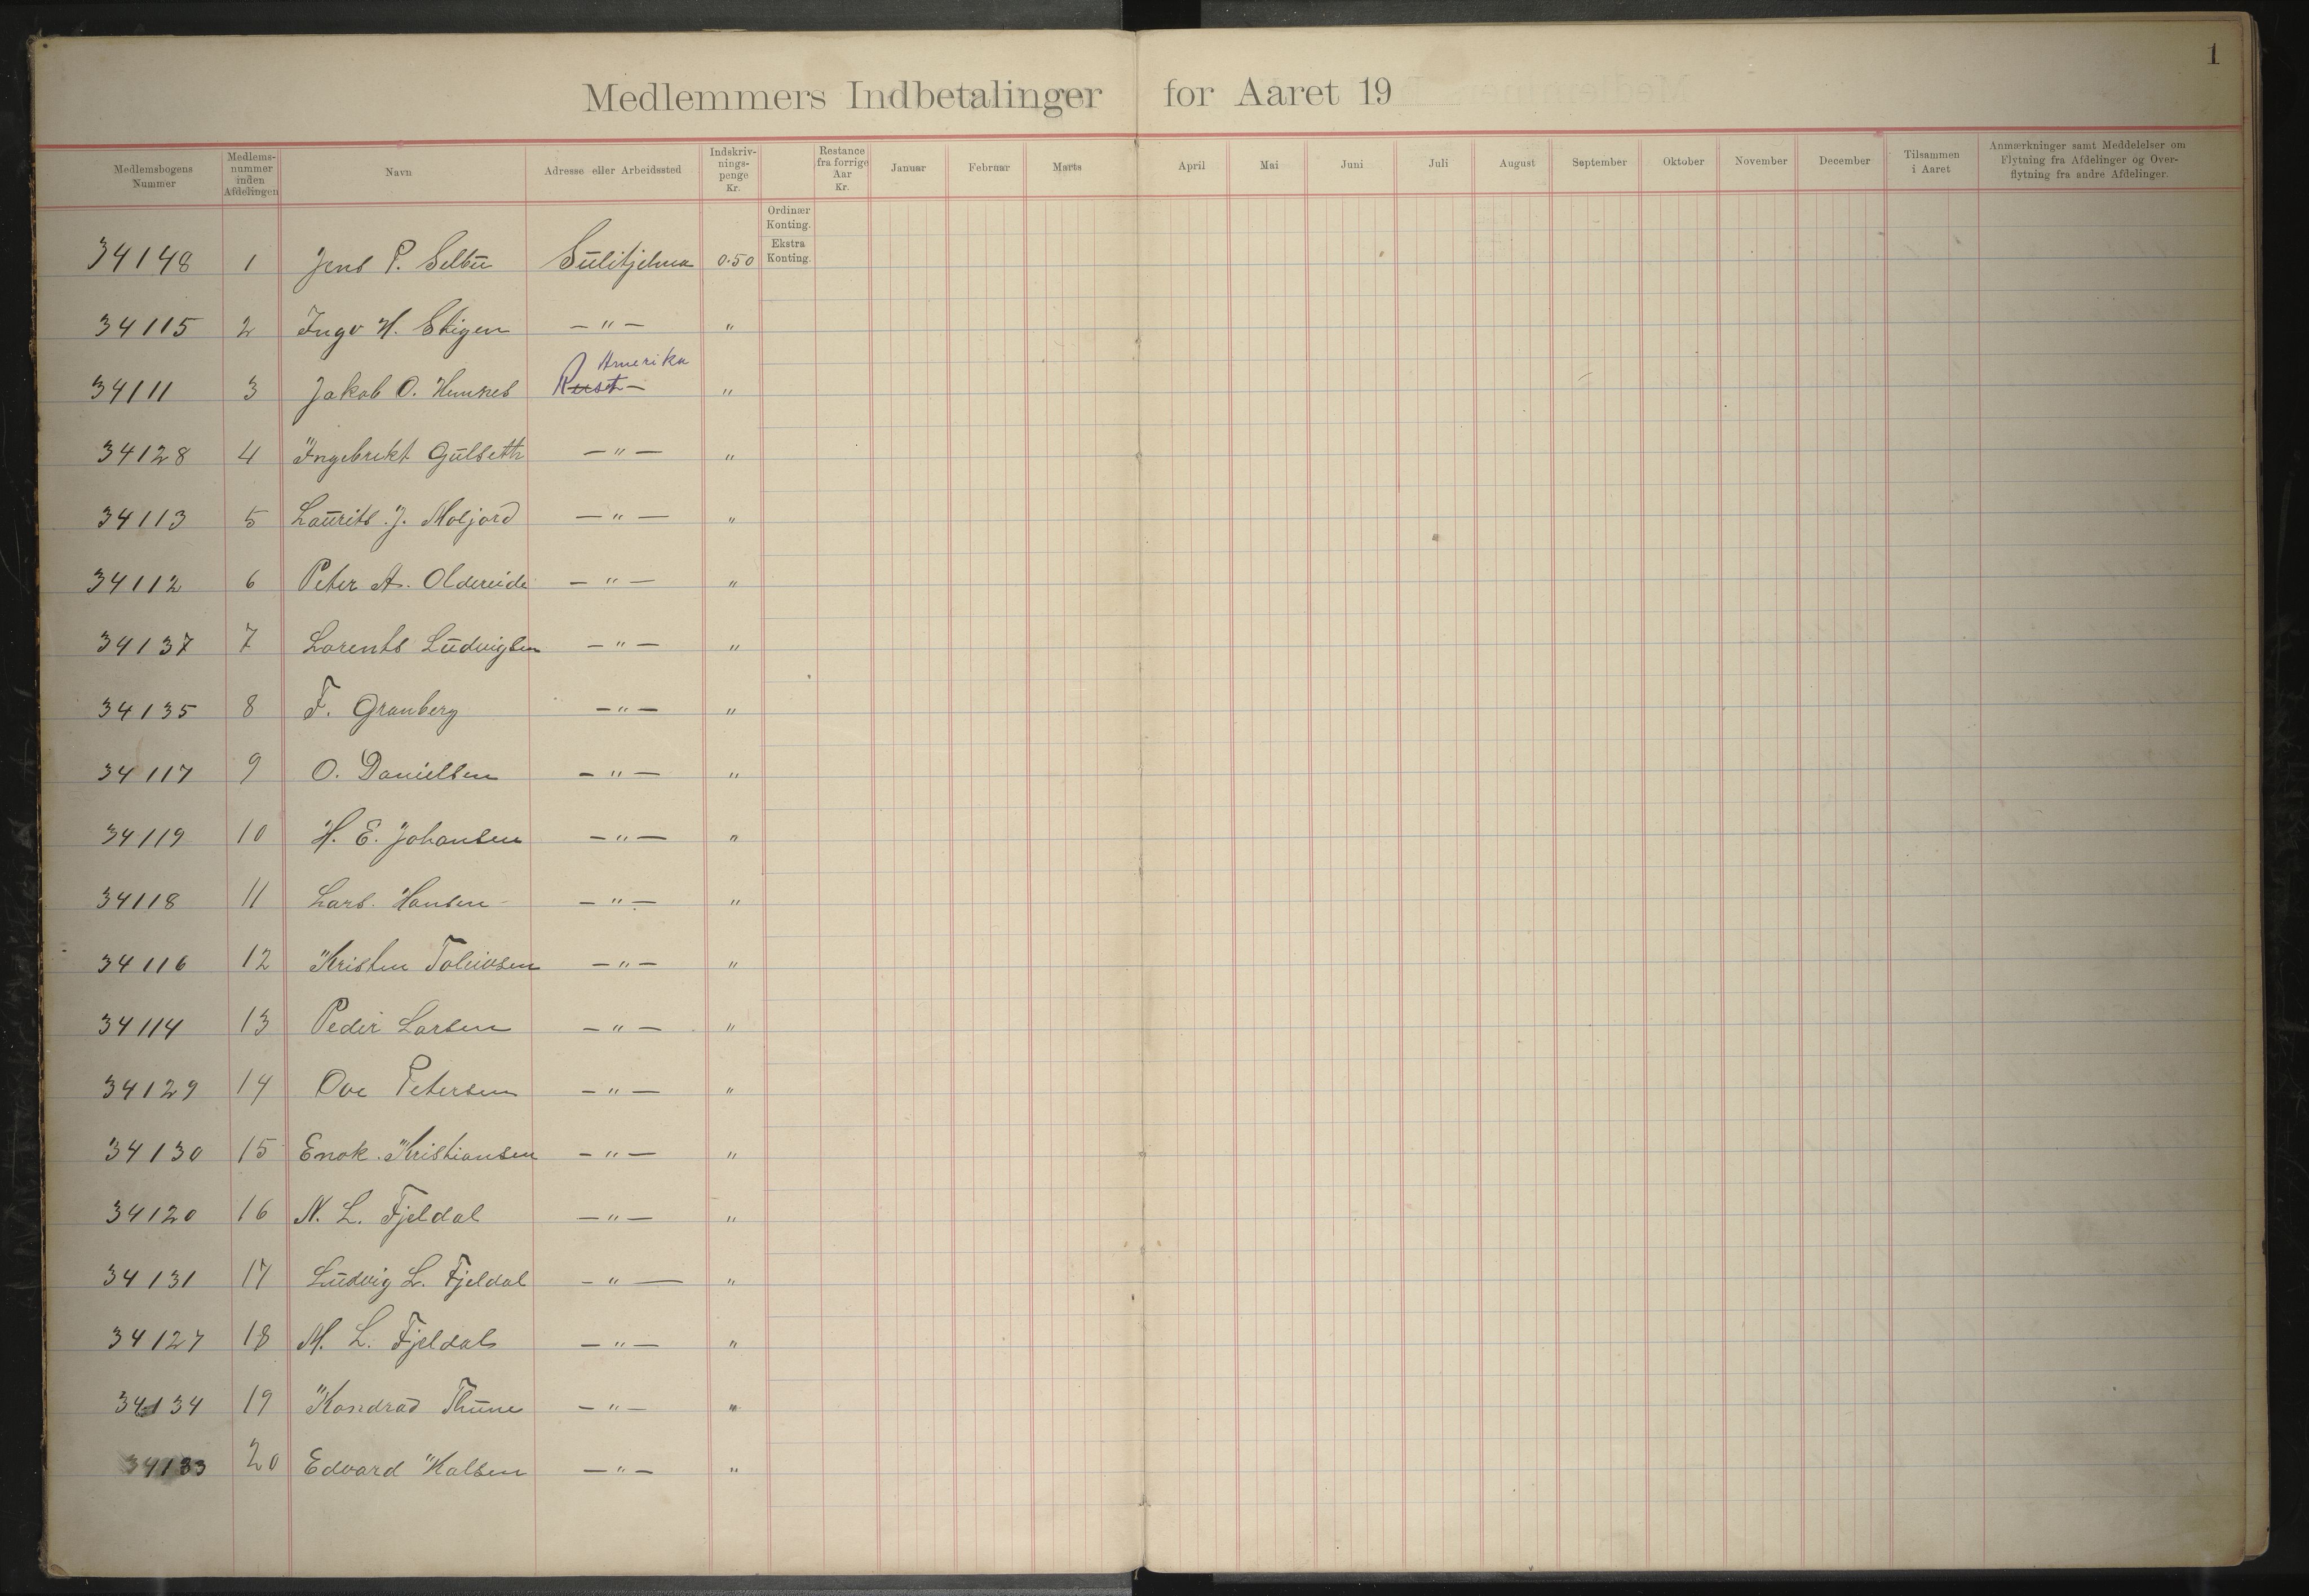 1
Medlemmers Indbetalinger for Aaret 19
Medlemsbogens Nummer | Medlems-nummer inden Afdelingen | Navn | Adresse eller Arbeidssted | Indskriv-nings-penge Kr. | Restance fra forrige Aar Kr. | Januar | Februar | Marts | April | Mai | Juni | Juli | August | September | Oktober | November | December | Tilsammen i Aaret | Anmærkninger samt Meddelelser om Flytning fra Afdelinger og Over-flytning fra andre Afdelinger.
Ordinær Konting.
Ekstra Konting.
34148 1 Jens P. Selbu Sulitjelma 0.50
34115 2 Ingv H. Skigen — " — "
Amerika
34111 3 Jakob O. Hemnes "
34128 4 Ingebrekt Gulseth — " — "
34113 5 Laurits J. Moljord — " — "
34112 6 Peter A. Oldereide — " — "
34137 7 Lorents Ludvigsen — " — "
34135 8 F. Granberg — " — "
34117 9 O. Danielsen — " — "
34119 10 H. E. Johansen — " — "
34118 11 Lars. Hansen — " — "
34116 12 Kristen Tollivsen — " — "
34114 13 Peder Larsen — " — "
34129 14 Ove Petersen — " — "
34130 15 Enok Kristiansen — " — "
34120 16 N. L. Fjeldal — " — "
34131 17 Ludvig L. Fjeldal — " — "
34127 18 M. L. Fjeldal — " — "
34134 19 Kondrad Thune — " — "
34133 20 Edvard Kalsen — " — "